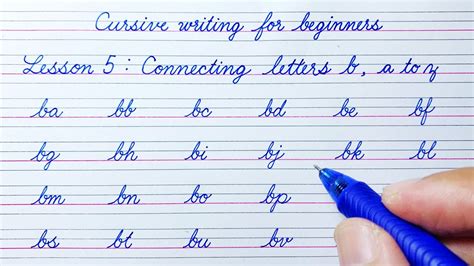 Cursive writing for beginners
Lesson 5 : Connecting letters b, a to z
ba bb bc bd be bf
bg bh bi bj bk bl
bm bn bo bp
bs bt bu bv